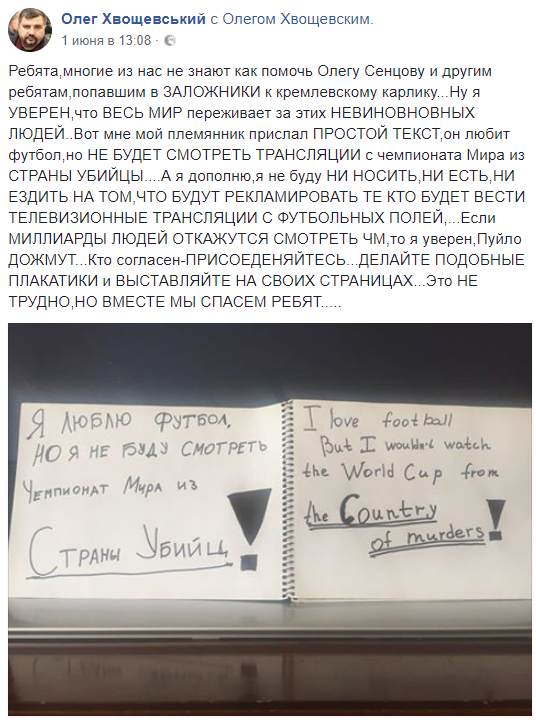 Олег Хвощевський с Олегом Хвощевским.
1 июня в 13:08 ·
Ребята,многие из нас не знают как помочь Олегу Сенцову и другим
ребятам,попавшим в ЗАЛОЖНИКИ к кремлевскому карлику...Ну я
УВЕРЕН,что ВЕСЬ МИР переживает за этих НЕВИНОВНОВНЫХ
ЛЮДЕЙ..Вот мне мой племянник прислал ПРОСТОЙ ТЕКСТ,он любит
футбол,но НЕ БУДЕТ СМОТРЕТЬ ТРАНСЛЯЦИИ с чемпионата Мира из
СТРАНЫ УБИЙЦЫ....А я дополню,я не буду НИ НОСИТЬ,НИ ЕСТЬ,НИ
ЕЗДИТЬ НА ТОМ,ЧТО БУДУТ РЕКЛАМИРОВАТЬ ТЕ КТО БУДЕТ ВЕСТИ
ТЕЛЕВИЗИОННЫЕ ТРАНСЛЯЦИИ С ФУТБОЛЬНЫХ ПОЛЕЙ,...Если
МИЛЛИАРДЫ ЛЮДЕЙ ОТКАЖУТСЯ СМОТРЕТЬ ЧМ,то я уверен,Пуйло
ДОЖМУТ...Кто согласен-ПРИСОЕДЕНЯЙТЕСЬ...ДЕЛАЙТЕ ПОДОБНЫЕ
ПЛАКАТИКИ и ВЫСТАВЛЯЙТЕ НА СВОИХ СТРАНИЦАХ...Это НЕ
ТРУДНО,НО ВМЕСТЕ МЫ СПАСЕМ РЕБЯТ.....
Я люблю футбол,
но я не буду смотреть
Чемпионат Мира из
Страны Убийц!
I love football
But I wouldn't watch
the World Cup from
the Country
of murders!